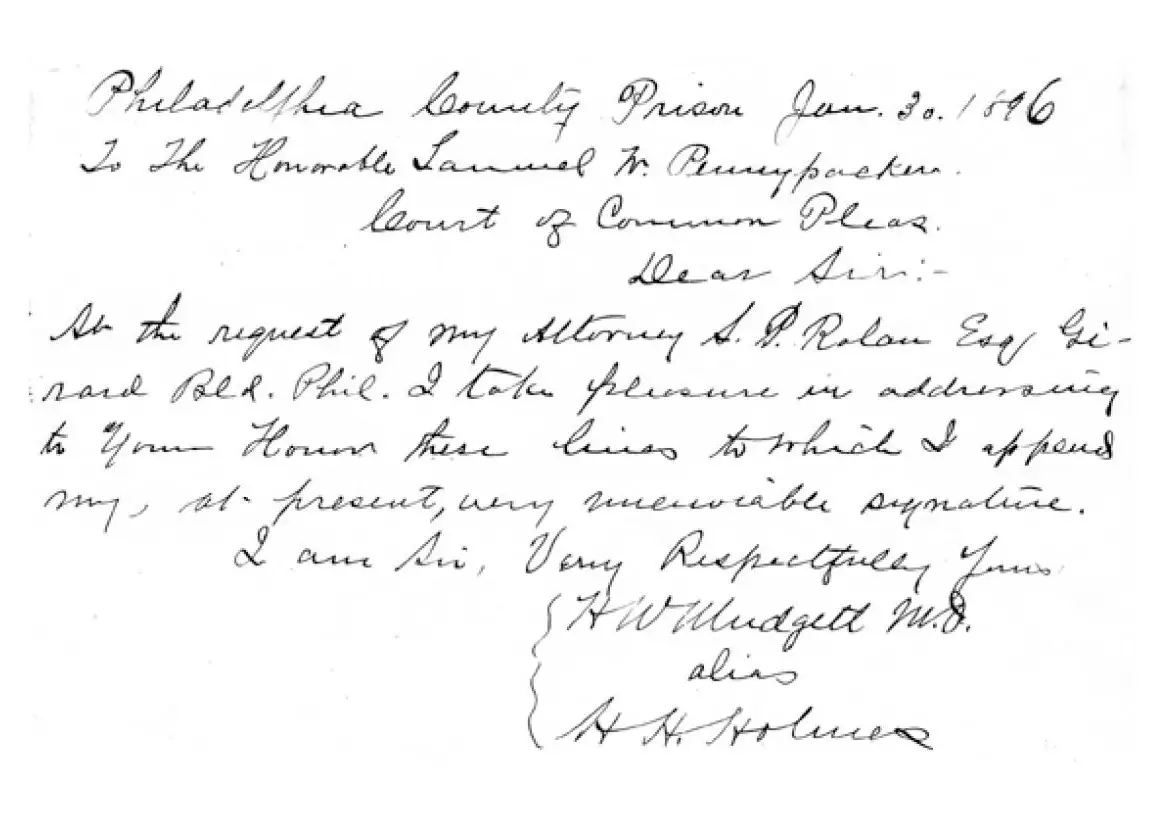 Philadelphia County Prison Jan. 30. 1896
To The Honorable Samuel W. Pennypacker.
Court of Common Pleas.
Dear Sir:-
At the request of my Attorney S. P. Rotan Esq Gi-
rard Bld. Phil. I take pleasure in addressing
to Your Honor these lines to which I append
my, at present, very unenviable signature.
I am Sir, Very Respectfully Yours
H W Mudgett M.D.
alias
H. H. Holmes